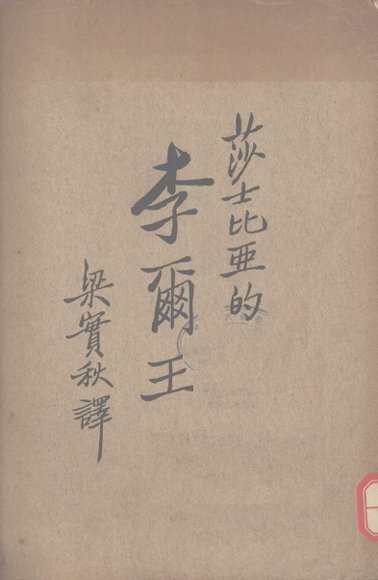 莎士比亚的
李爾王
梁實秋譯